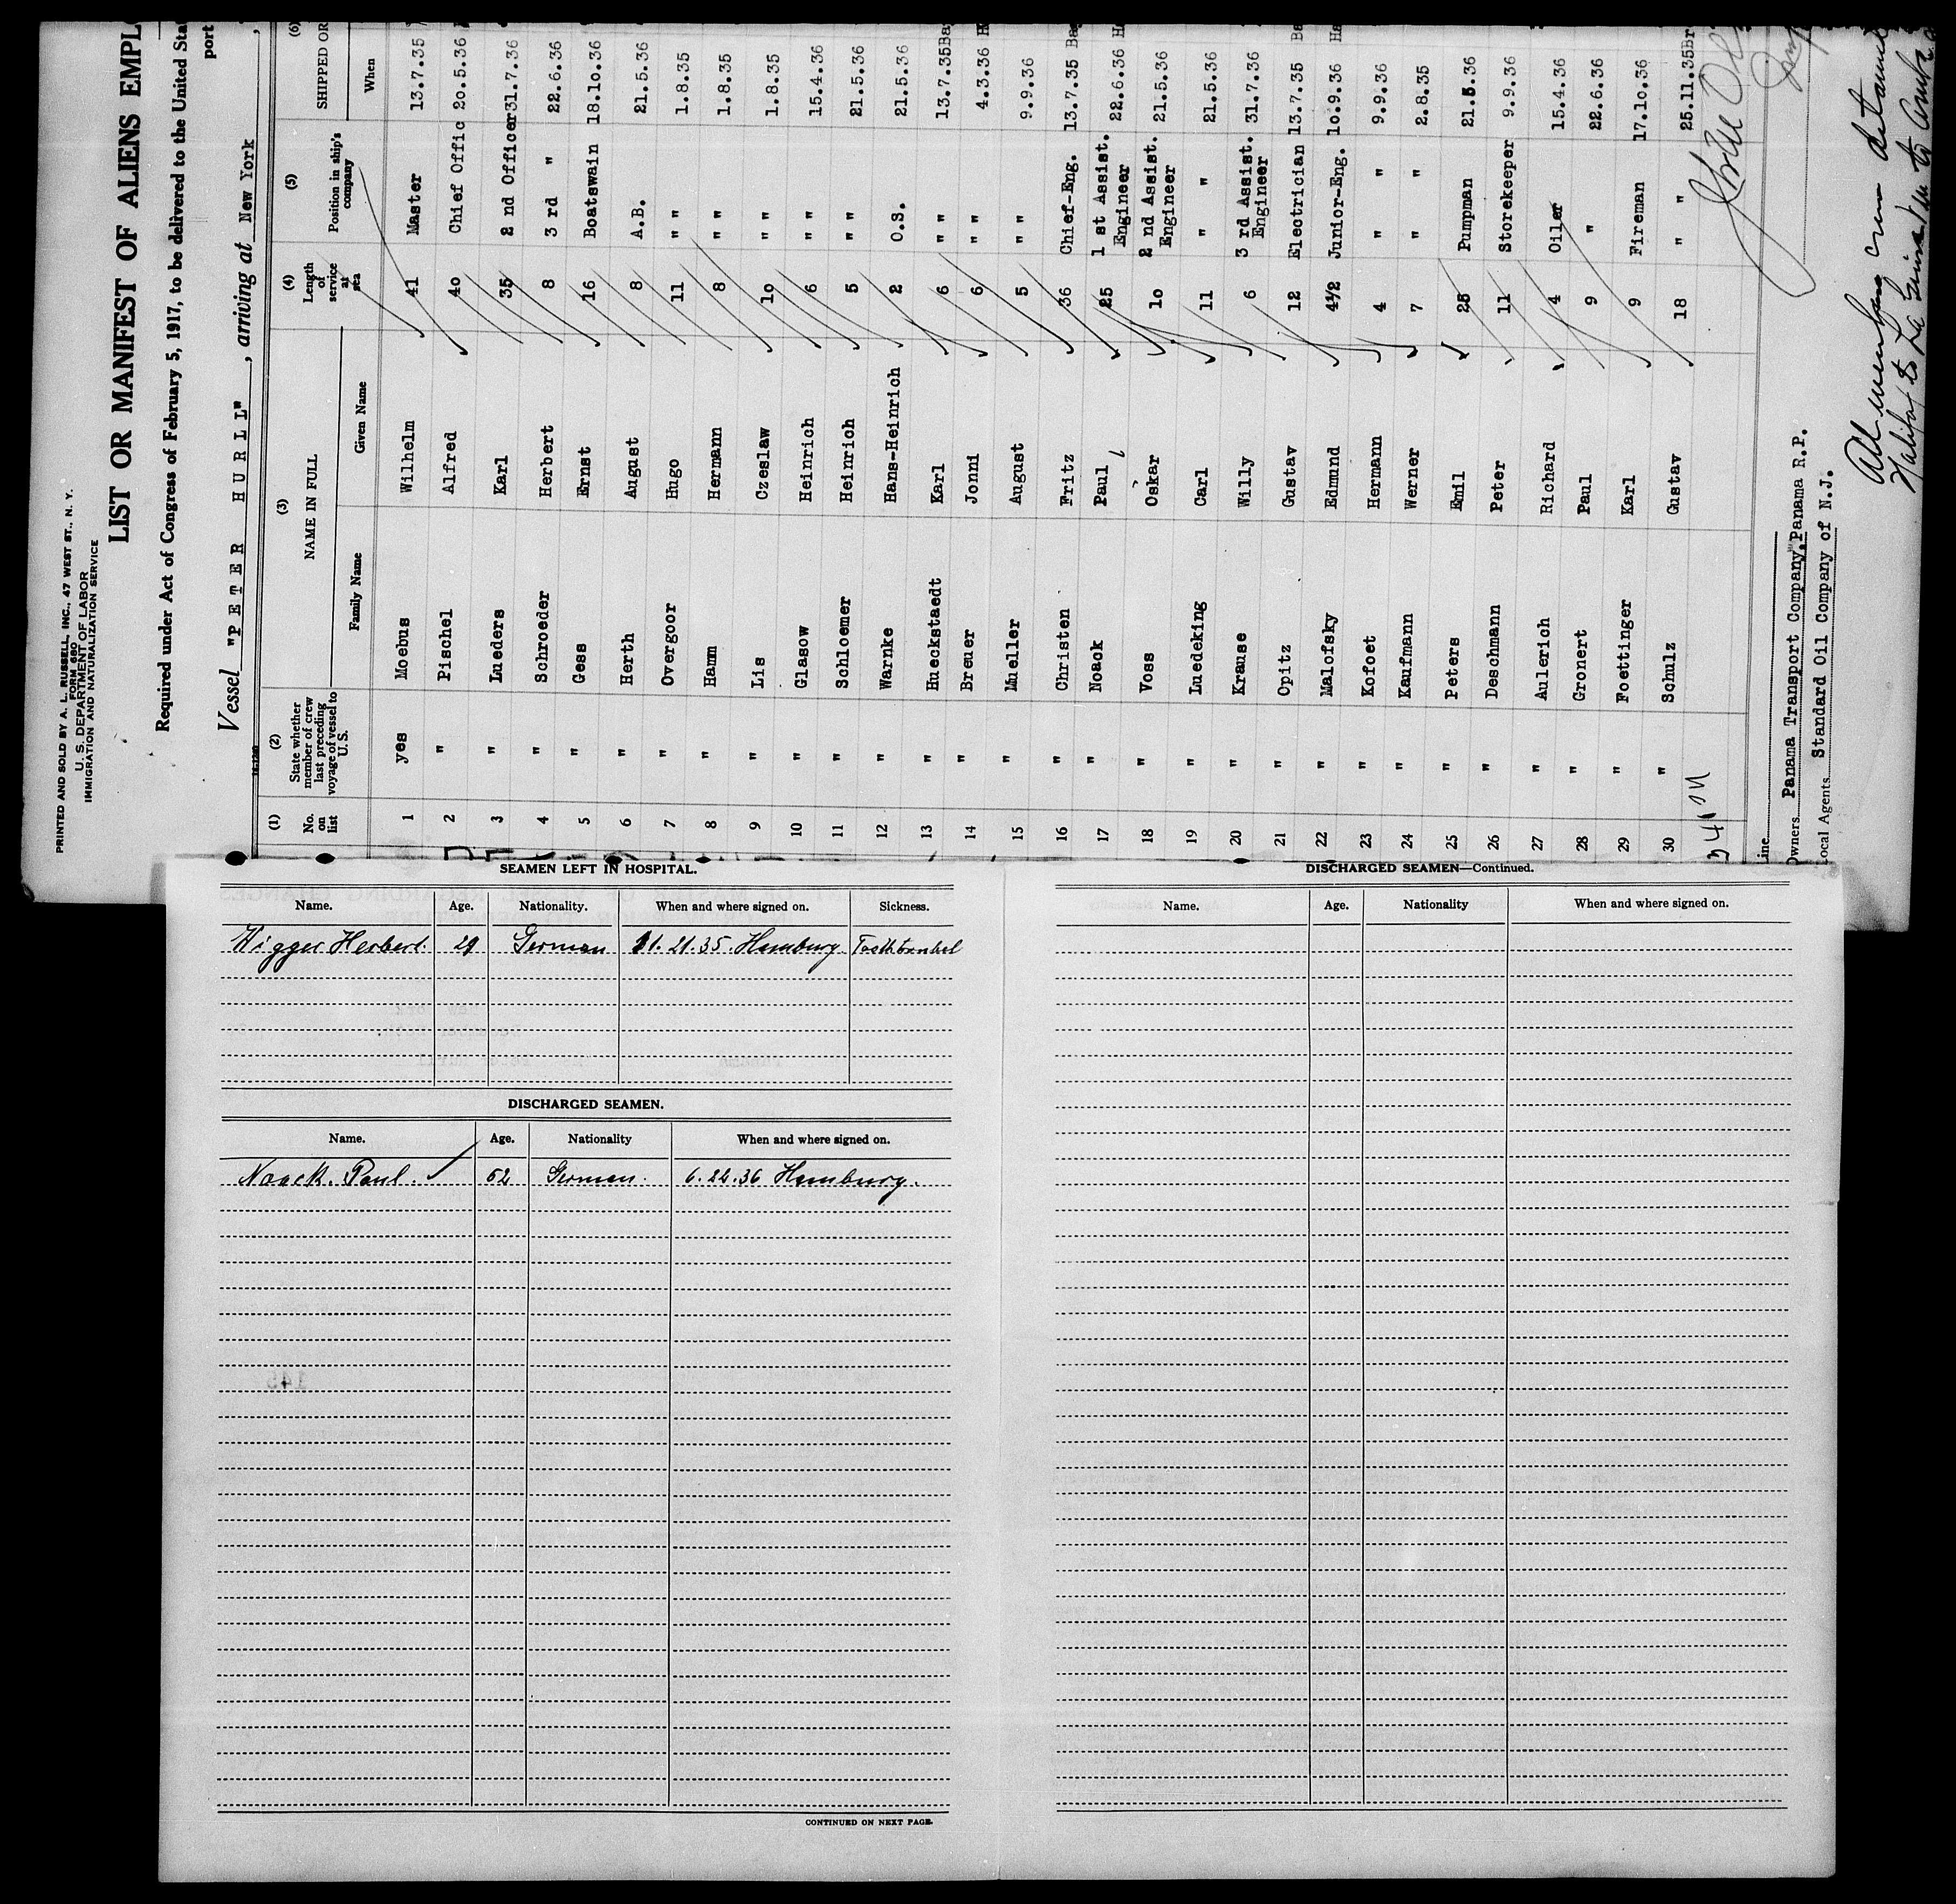 PRINTED AND SOLD BY A. L. RUSSELL, INC., 47 WEST ST., N. Y.
FORM 680
U. S. DEPARTMENT OF LABOR
IMMIGRATION AND NATURALIZATION SERVICE
LIST OR MANIFEST OF ALIENS EMPL
Required under Act of Congress of February 5, 1917, to be delivered to the United Sta
port
Vessel "PETER HURLL", arriving at New York,
(1) (2) (3) (4) (5) (6)
No. on list State whether member of crew last preceding voyage of vessel to U. S. NAME IN FULL Length of service at sea Position in ship's company SHIPPED OR
Family Name Given Name When
1 yes Moebus Wilhelm 41 Master 13.7.35
2 " Pischel Alfred 40 Chief Offic 20.5.36
3 " Lueders Karl 35 2 nd Officer 31.7.36
4 " Schroeder Herbert 8 3 rd " 22.6.36
5 " Gess Ernst 16 Boatswain 18.10.36
6 " Herth August 8 A.B. 21.5.36
7 " Overgoor Hugo 11 " " 1.8.35
8 " Hamm Hermann 8 " " 1.8.35
9 " Lis Czeslaw 10 " " 1.8.35
10 " Glasow Heinrich 6 " " 15.4.36
11 " Schloemer Heinrich 5 " " 21.5.36
12 " Warnke Hans-Heinrich 2 O.S. 21.5.36
13 " Hueckstaedt Karl 6 " " 13.7.35 Ba
14 " Breuer Jonni 6 " " 4.3.36 H
15 " Mueller August 5 " " 9.9.36
16 " Christen Fritz 36 Chief-Eng. 13.7.35 Ba
17 " Noack Paul 25 1 st Assist. Engineer 22.6.36 Ha
18 " Voss Oskar 10 2 nd Assist. Engineer 21.5.36
19 " Luedeking Carl 11 " " 21.5.36
20 " Krause Willy 6 3 rd Assist. Engineer 31.7.36
21 " Opitz Gustav 12 Electrician 13.7.35 Ba
22 " Malofsky Edmund 4½ Junior-Eng. 10.9.36 Ha
23 " Kofoet Hermann 4 " " 9.9.36
24 " Kaufmann Werner 7 " " 2.8.35
25 " Peters Emil 25 Pumpman 21.5.36
26 " Deschmann Peter 11 Storekeeper 9.9.36
27 " Aulerich Richard 4 Oiler 15.4.36
28 " Gronert Paul 9 " 22.6.36
29 " Foettinger Karl 9 Fireman 17.10.36
30 " Schulz Gustav 18 " " 25.11.35 Br
Line
Owners Panama Transport Company, Panama R.P.
Local Agents Standard Oil Company of N.J.
All members crew
Halifax to
SEAMEN LEFT IN HOSPITAL.
Name. Age. Nationality. When and where signed on. Sickness.
Wigger Herbert. 29 German 11. 21. 35. Hamburg
DISCHARGED SEAMEN.
Name. Age. Nationality When and where signed on.
Noack. Paul. 52 German. 6. 22. 36 Hamburg.
145
CONTINUED ON NEXT PAGE.
DISCHARGED SEAMEN—Continued.
Name. Age. Nationality When and where signed on.